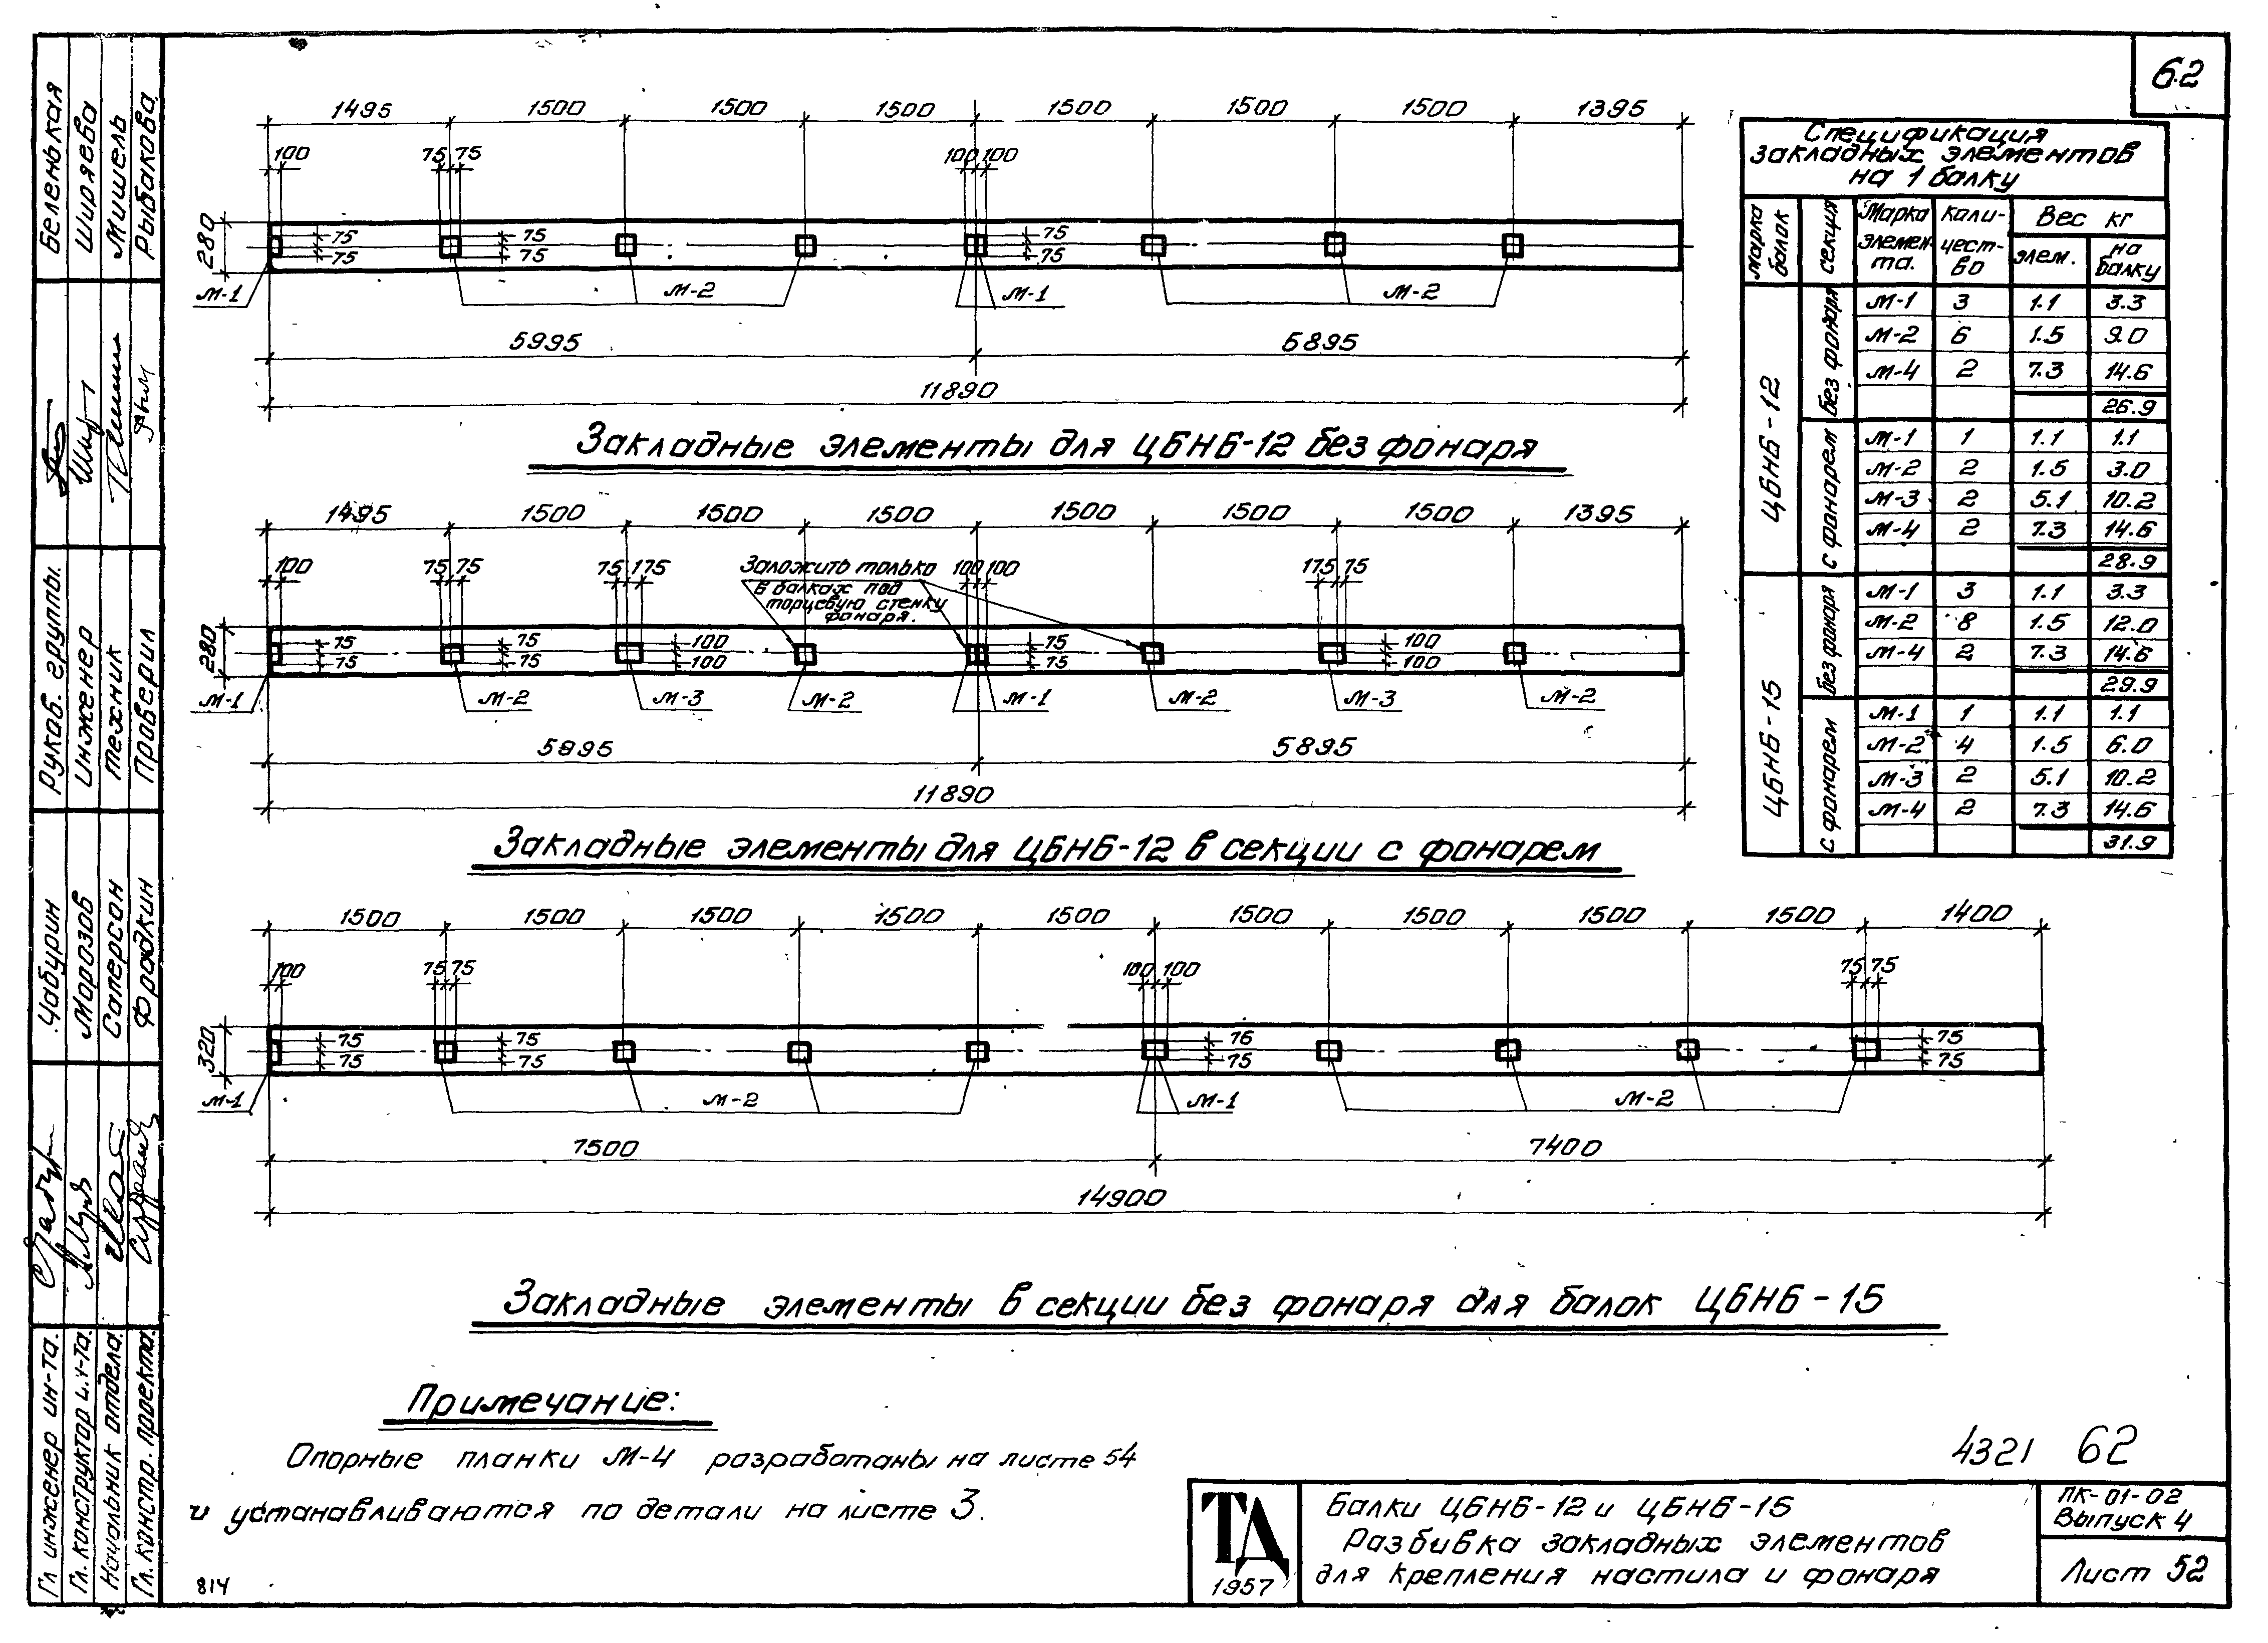 62
1495 1500 1500 1500 1500 1500 1500 1395
100 75 75 100 100
280 75 75 75 75 75 75
М-1 М-2 М-1 М-2
5995 5895
11890
Закладные элементы для ЦБНБ-12 без фонаря
1495 1500 1500 1500 1500 1500 1500 1395
100 75 75 75 175 100 100 175 75
Заложить только
в балках под
торцевую стенку
фонаря.
280 75 75 75 75 100 100 75 75 100 100
М-1 М-2 М-3 М-2 М-1 М-2 М-3 М-2
5995 5895
11890
Закладные элементы для ЦБНБ-12 в секции с фонарем
1500 1500 1500 1500 1500 1500 1500 1500 1500 1400
100 75 75 100 100 75 75
320 75 75 75 75 75 75 75 75
М-1 М-2 М-1 М-2
7500 7400
14900
Закладные элементы в секции без фонаря для балок ЦБНБ-15
Примечание:
Опорные планки М-4 разработаны на листе 54
и устанавливаются по детали на листе 3.
814
Спецификация
закладных элементов
на 1 балку
Марка балок
секция
Марка элемен-та.
коли-чест-во
Вес кг
элем. на балку
ЦБНБ-12
без фонаря
М-1 3 1.1 3.3
М-2 6 1.5 9.0
М-4 2 7.3 14.6
26.9
с фонарем
М-1 1 1.1 1.1
М-2 2 1.5 3.0
М-3 2 5.1 10.2
М-4 2 7.3 14.6
28.9
ЦБНБ-15
без фонаря
М-1 3 1.1 3.3
М-2 8 1.5 12.0
М-4 2 7.3 14.6
29.9
с фонарем
М-1 1 1.1 1.1
М-2 4 1.5 6.0
М-3 2 5.1 10.2
М-4 2 7.3 14.6
31.9
4321 62
ТД
1957
Балки ЦБНБ-12 и ЦБНБ-15
Разбивка закладных элементов
для крепления настила и фонаря
ПК-01-02
Выпуск 4
Лист 52
Гл. инженер ин-та. Чабурин
Гл. конструктор ин-та. Морозов
Начальник отдела. Саперсон
Гл. констр. проекта. Фрадкин
Руков. группы. Беленькая
Инженер Ширяева
техник Мишель
Проверил Рыбакова